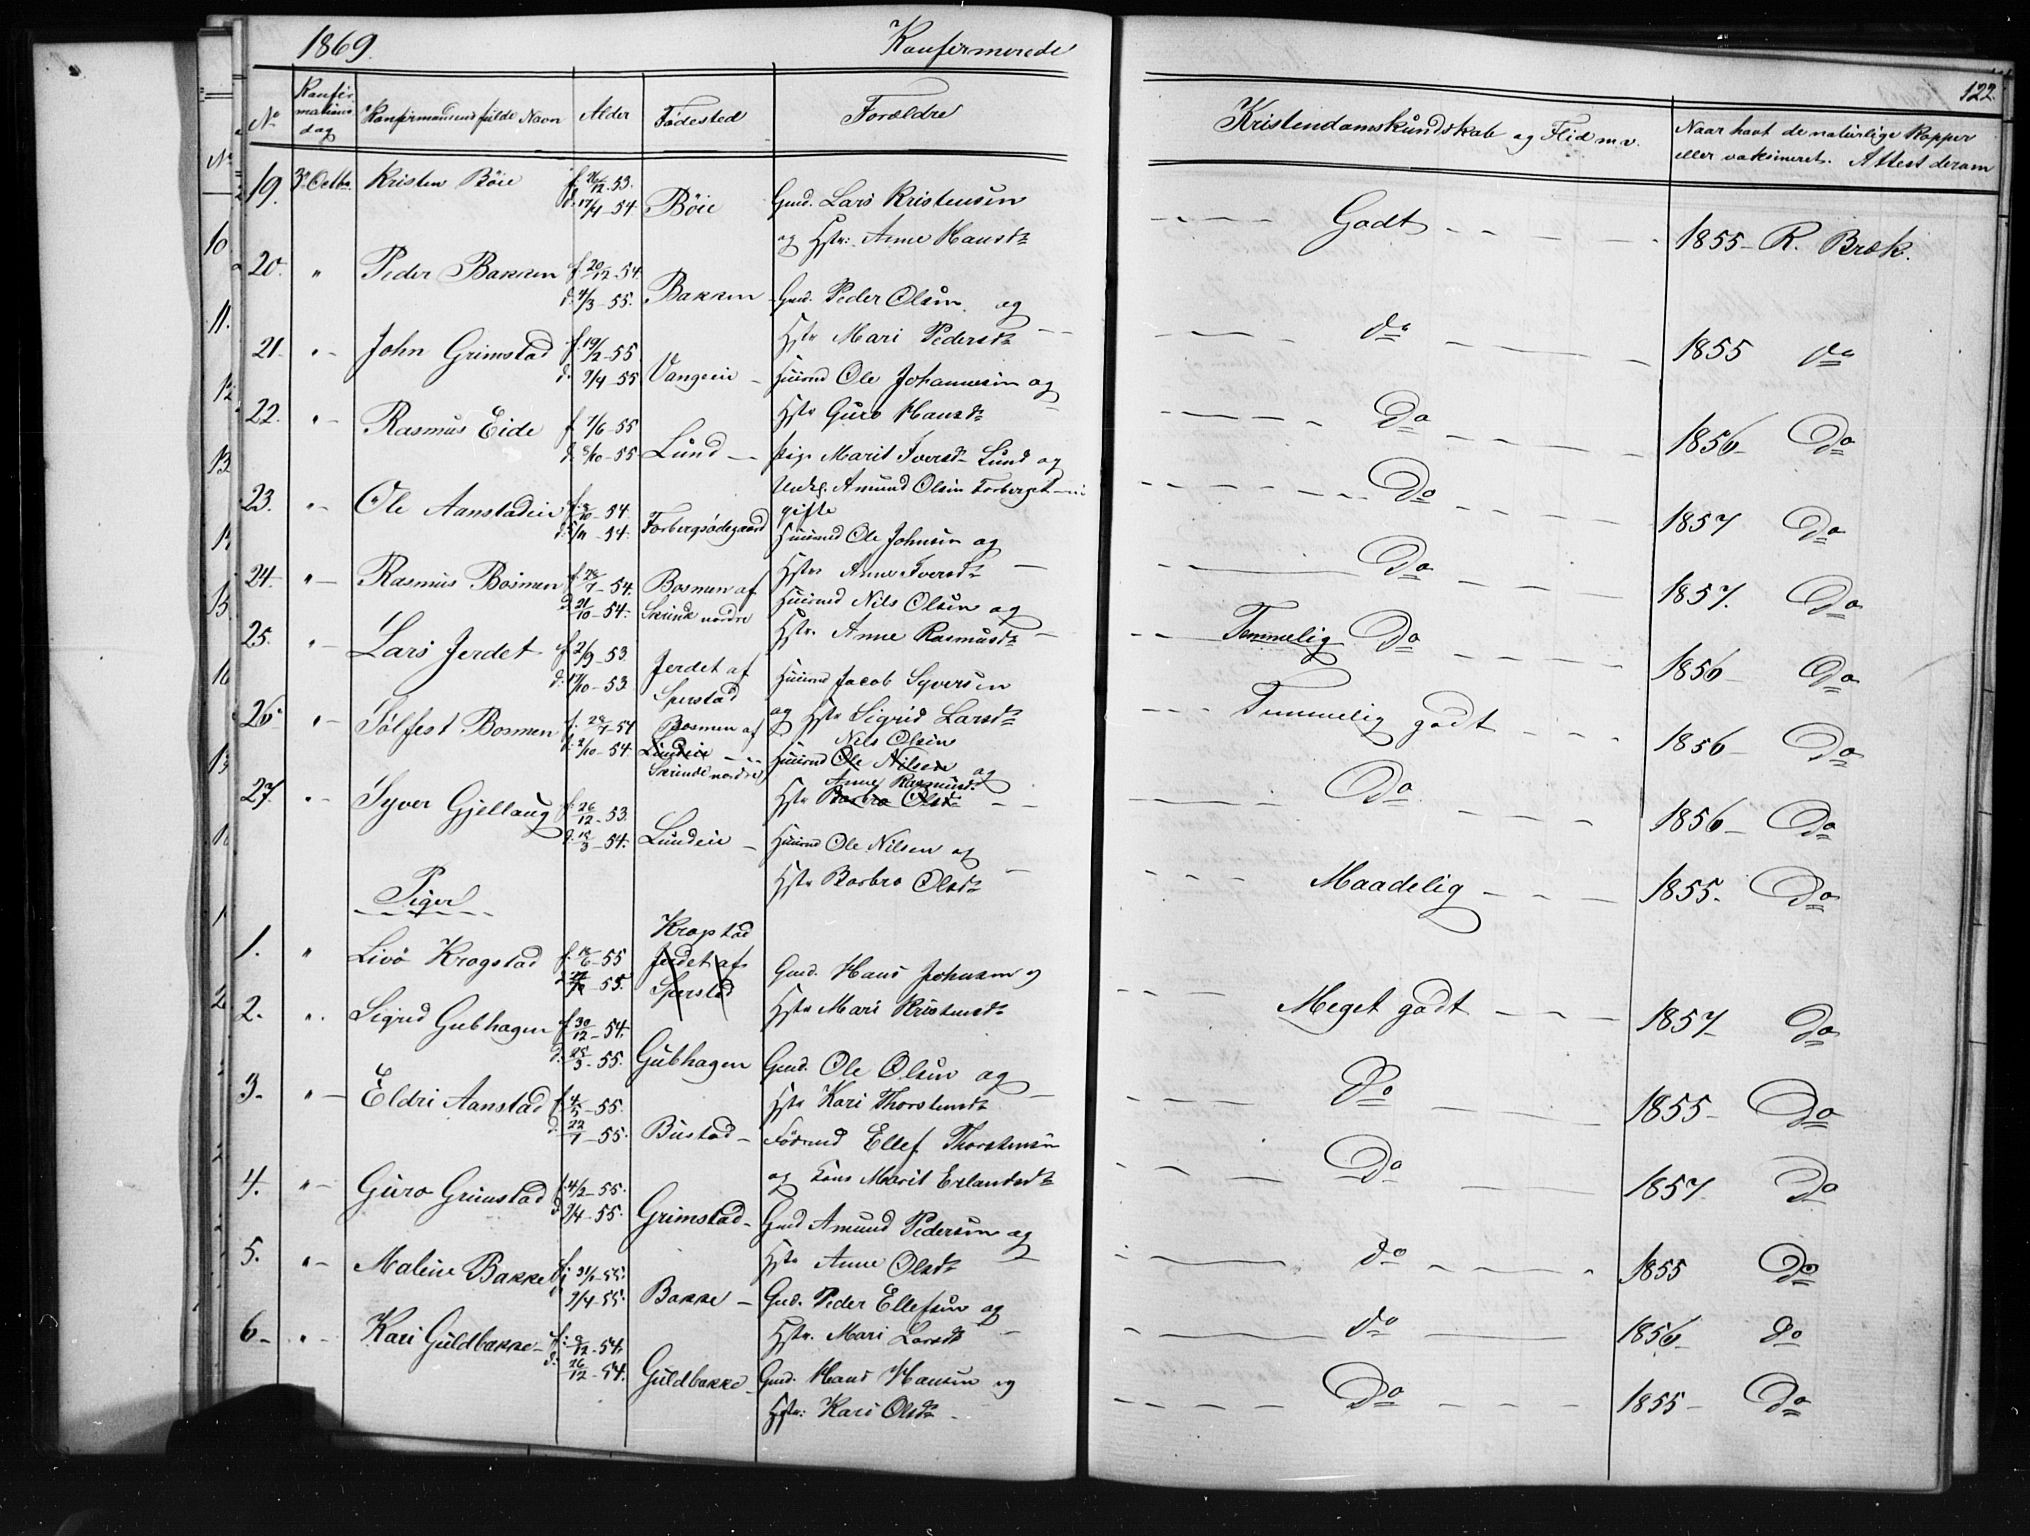 1869.
Konfirmerede
122.
No
Konfir-
mations
dag
Konfirmandens fulde Navn
Alder
Fødested
Forældre
Kristendomskundskab og Flid m.v.
Naar havt de naturlige Kopper
eller vaksineret. Attest derom
19. 3 Octbr. Kristen Böie f. 26/12 53. d. 17/4 - 54 Böie Gmd. Lars Kristensen
og Hstr: Anne Hansdtr
Godt 1855 - R. Bræk.
20. " Peder Bakken f. 20/12 - 54 d. 4/3 - 55. Bakken Gmd. Peder Olsen og
Hstr Mari Pedersdtr
do 1855 do
21. " John Grimstad f. 19/2 - 55 d. 9/4 - 55 Vangeeie Huusmd Ole Johannesen og
Hstr Guro Hansdtr
Do 1856 Do
22. " Rasmus Eide f. 7/6 - 55 d. /10 - 55 Lund Pige Marit Iversd. Lund og
Unkg. Amund Olsen Forberget u
gifte
Do 1857 Do
23. " Ole Aanstadeie f. /10 - 54. d. 5/11 - 54. Forbergsödegaard Huusmd Ole Johnsen og
Hstr Anne Iversdtr
Do 1857. Do
24. " Rasmus Bosmen f. 28/7 - 54. d. 21/10 - 54. Bosmen af
Skiinde nordre
Huusmd Nils Olsen og
Hstr. Anne Rasmusdtr
Temmelig Do 1856 Do
25. " Lars Jerdet f. 2/9 - 53. d. 17/10 - 53 Jerdet af
Sperstad
Huusmd Jacob Syversen
og Hstr Sigrid Larsdtr
Temmelig godt 1856 - Do
26. " Sölfest Bosmen f. 28/7 - 54 d. 2/10 - 54. Bosmen af
Lundeie
Skiinde nordre
Nils Olsen
Huusmd Ole Nilsen og
Anne Rasmusd.
Hstr Barbro Olsdtr
Do 1856 - Do
27. " Syver Gjellaug f. 26/12 - 53. d. 15/3 - 54. Lundeie Huusmd Ole Nilsen og
Hstr Barbro Olsdtr
Maadelig 1855. Do
Piger
1. " Livö Krogstad f. /6 - 55 - 55. Krogstad
Jerdet af
Sperstad
Gmd. Hans Johnsen og
Hstr Mari Kristensdtr
Meget godt 1857 Do
2. " Sigrid Gubhagen f. 30/12 - 54. d. 25/3 - 55. Gubhagen Gmd. Ole Olsen og
Hstr Kari Thorstensdtr
Do 1855 - Do
3. " Eldri Aanstad f. 4/5 - 55. d. 22/7 - 55. Bustad Födrmd Ellef Thorstensen
og Kone Marit Erlandsdtr
Do 1857 Do
4. " Guro Grimstad f. 4/2 - 55. d. 9/4 - 55. Grimstad Gmd Amund Pedersen og
Hstr Anne Olsdtr
do 1855 Do
5. " Malene Bakke f. 31/1 - 55. 9/4 - 55. Bakke Gmd. Peder Ellefsen og
Hstr. Mari Larsdtr
do 1856 do
6 - " Kari Guldbakke f. 2/12 - 54. d. 26/12 - 54. Guldbakke Gmd. Hans Hansen og
Hstr: Kari Olsdtr
Do 1855 - Do